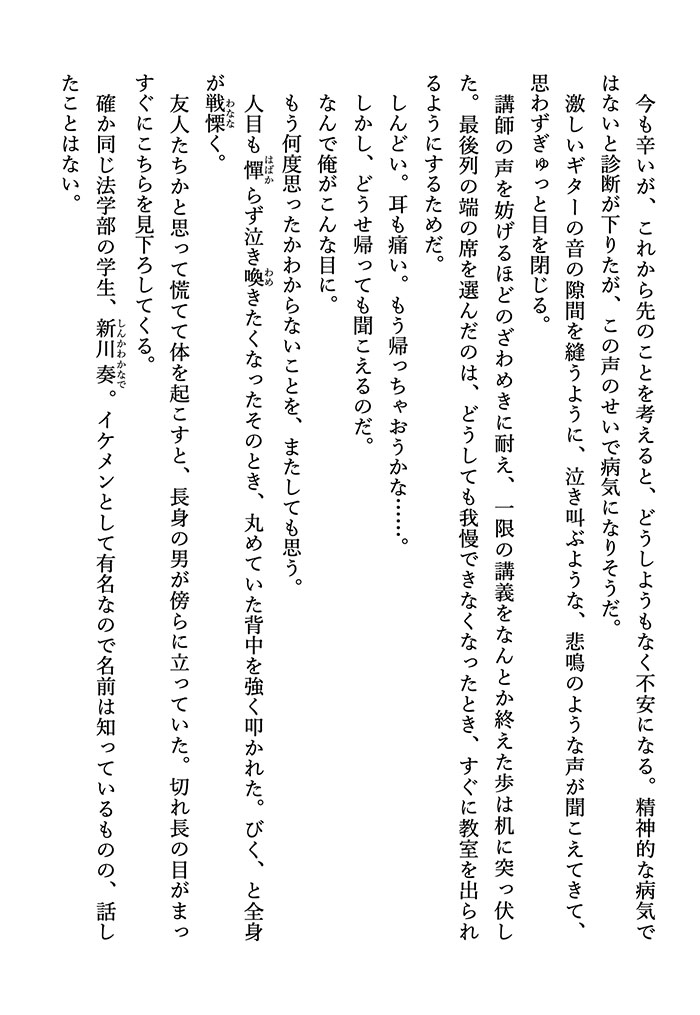 今も辛いが、これから先のことを考えると、どうしようもなく不安になる。精神的な病気で
はないと診断が下りたが、この声のせいで病気になりそうだ。
激しいギターの音の隙間を縫うように、泣き叫ぶような、悲鳴のような声が聞こえてきて、
思わずぎゅっと目を閉じる。
講師の声を妨げるほどのざわめきに耐え、一限の講義をなんとか終えた歩は机に突っ伏し
た。最後列の端の席を選んだのは、どうしても我慢できなくなったとき、すぐに教室を出られ
るようにするためだ。
しんどい。耳も痛い。もう帰っちゃおうかな……。
しかし、どうせ帰っても聞こえるのだ。
なんで俺がこんな目に。
もう何度思ったかわからないことを、またしても思う。
人目も憚らず泣き喚きたくなったそのとき、丸めていた背中を強く叩かれた。びく、と全身
が戦慄く。
友人たちかと思って慌てて体を起こすと、長身の男が傍らに立っていた。切れ長の目がまっ
すぐにこちらを見下ろしてくる。
確か同じ法学部の学生、新川奏。イケメンとして有名なので名前は知っているものの、話し
たことはない。
はばか
わめ
わなな
しんかわかなで